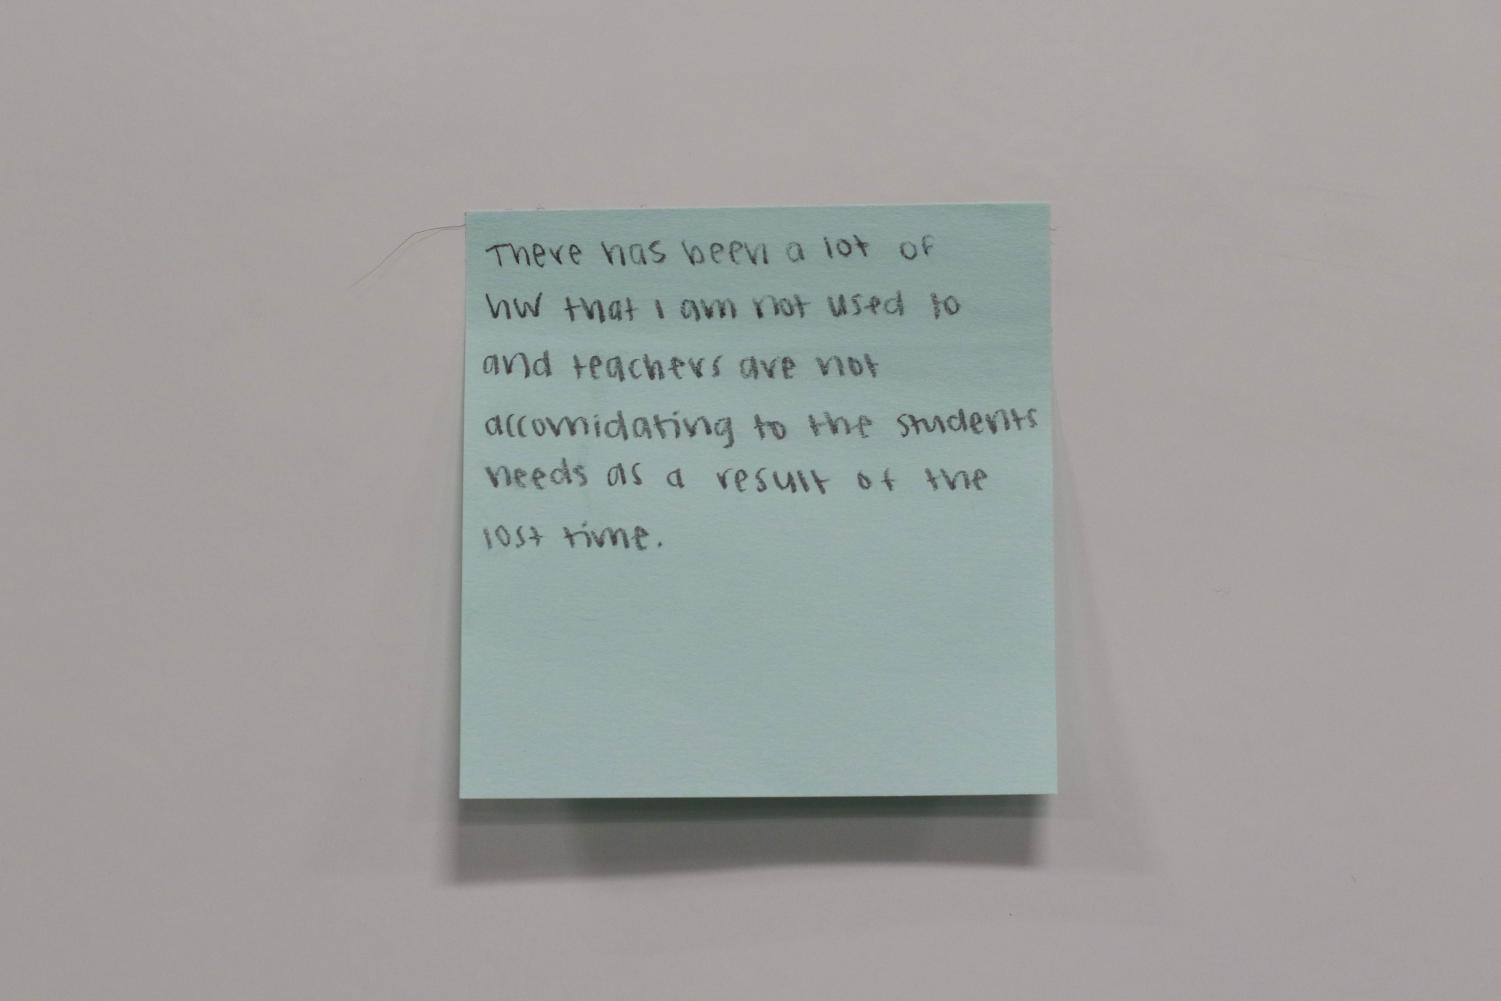 There has been a lot of
hw that I am not used to
and teachers are not
accomidating to the students
needs as a result of the
lost time.